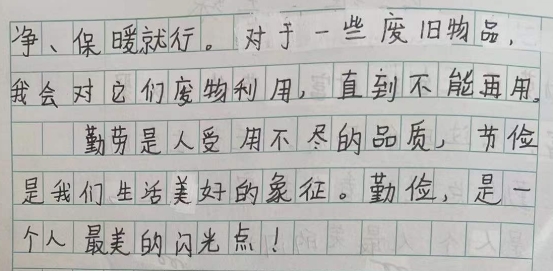 净、保暖就行。对于一些废旧物品，
我会对它们废物利用，直到不能再用。
勤劳是人受用不尽的品质，节俭
是我们生活美好的象征。勤俭，是一
个人最美的闪光点！